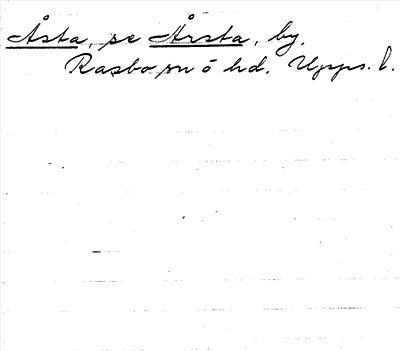 Åsta, se Årsta, by.
Rasbo sn ö hd. Upps. l.